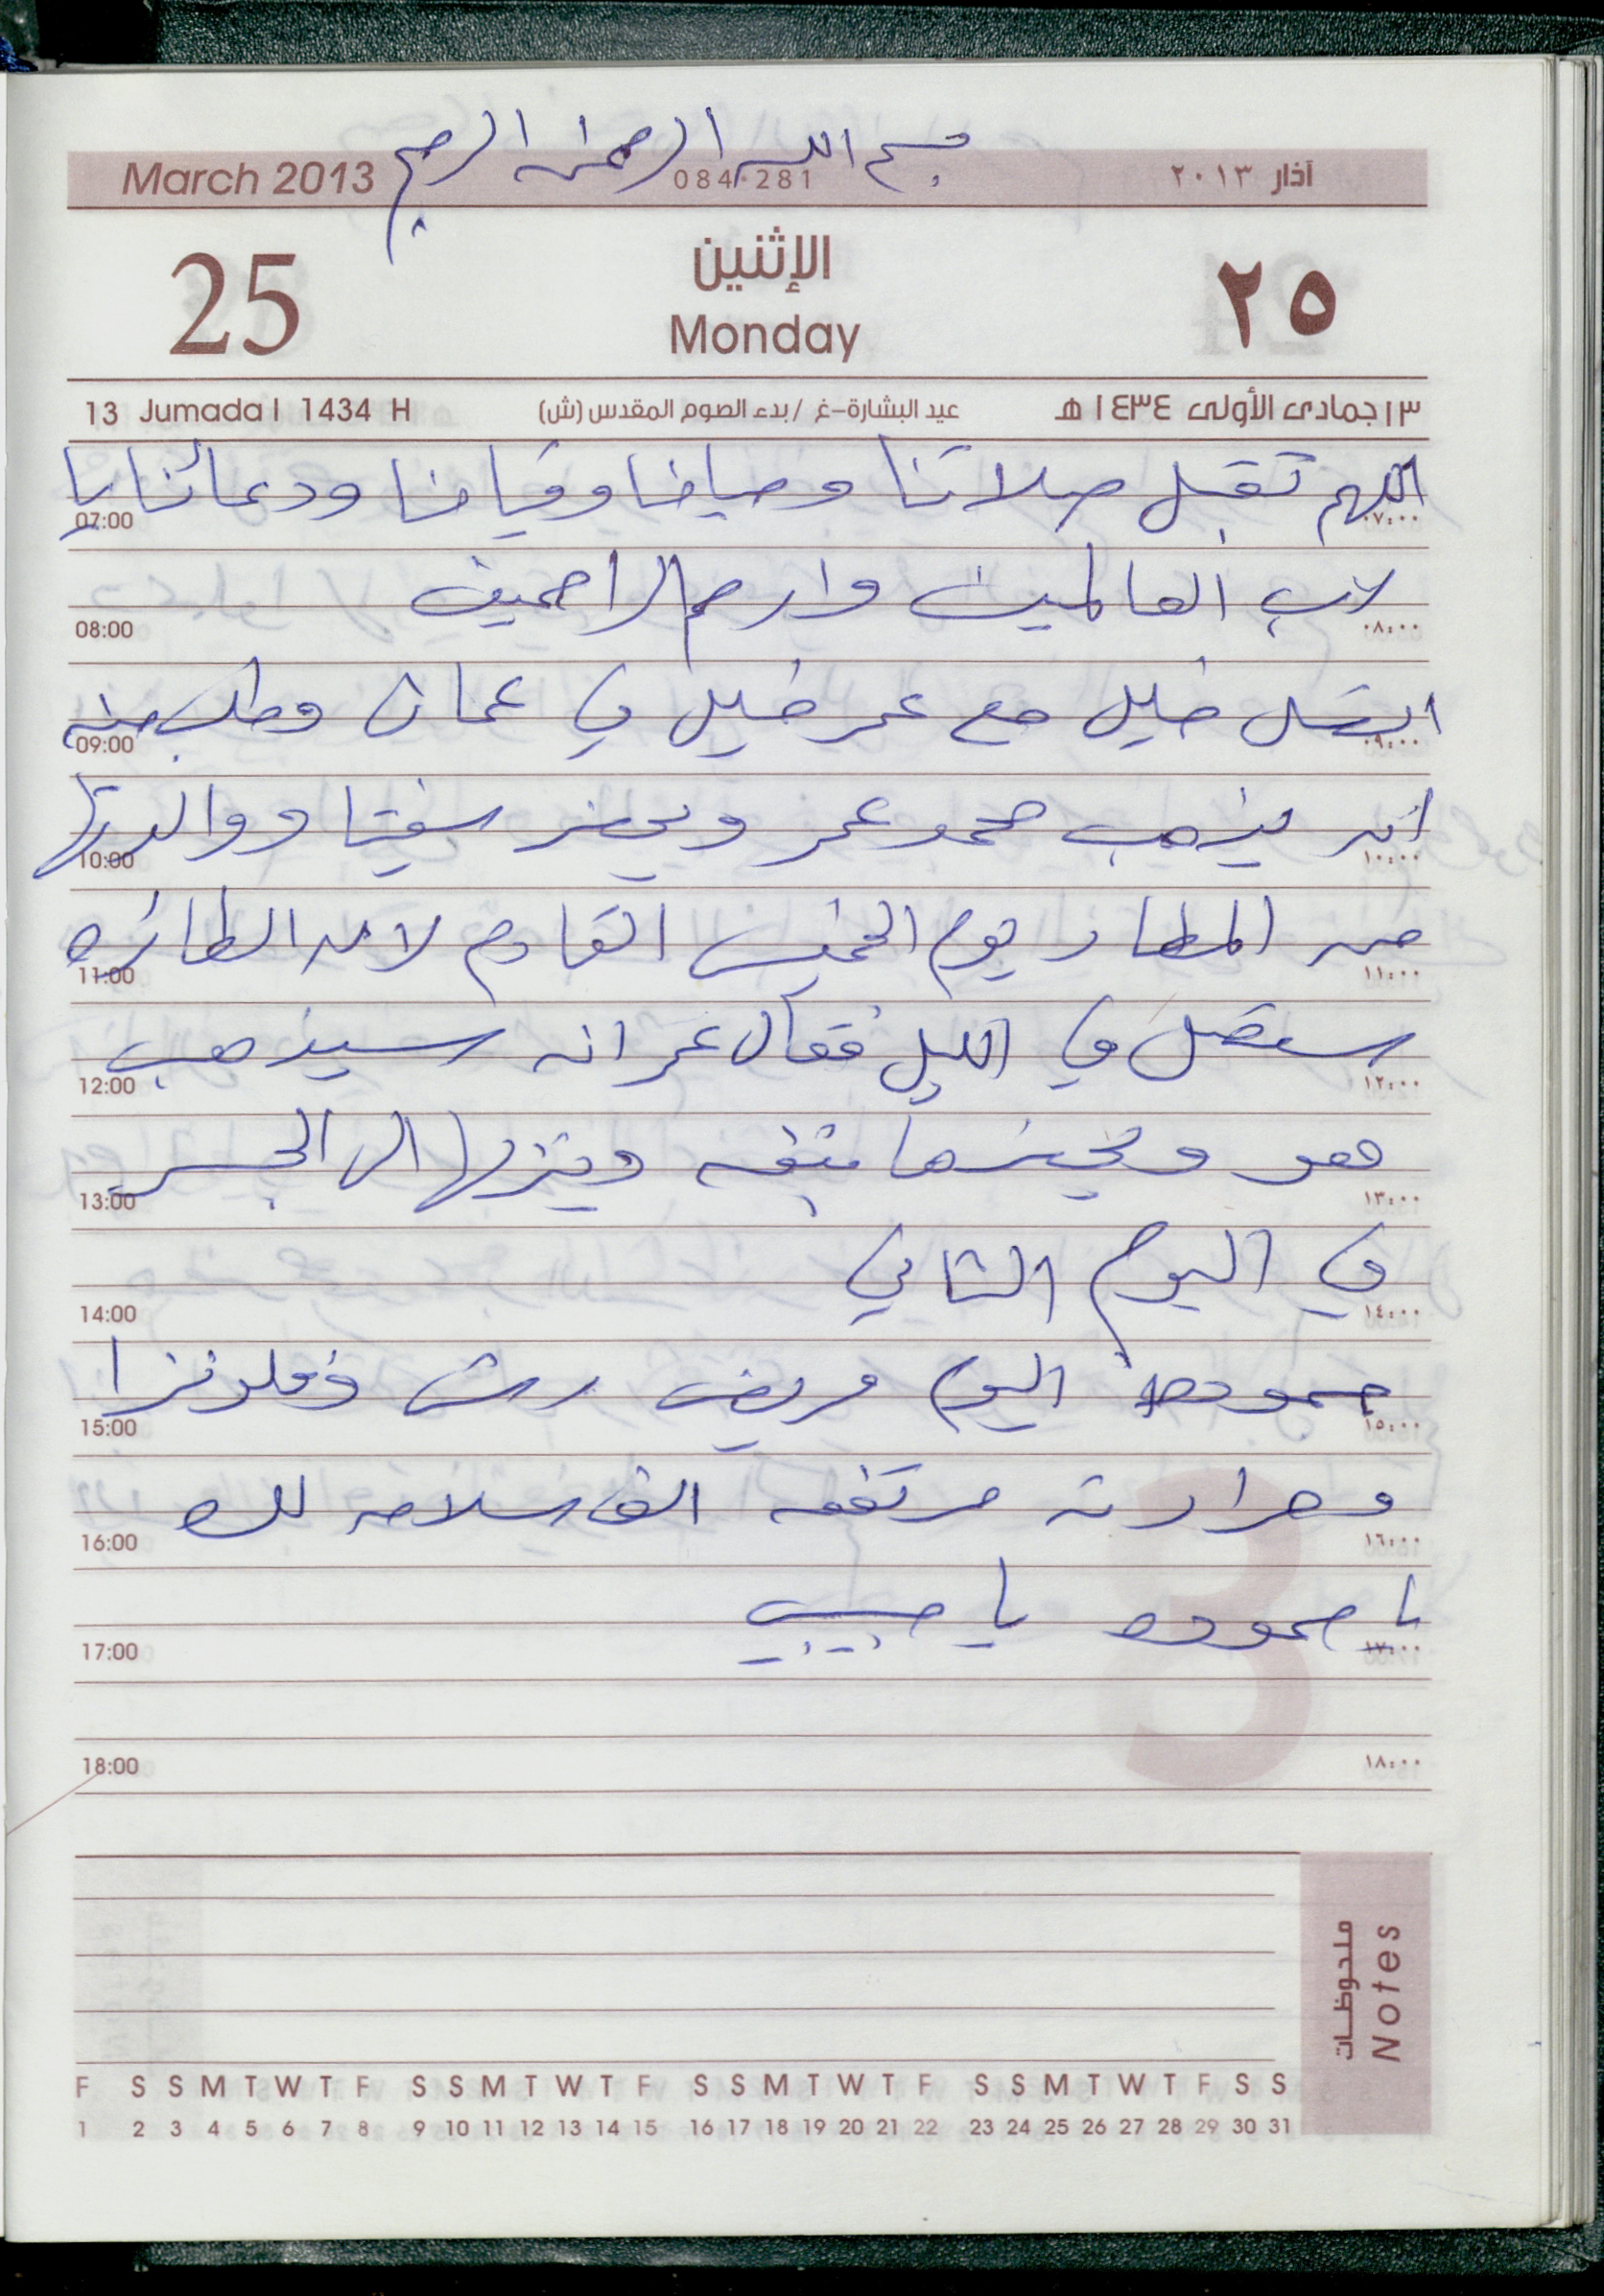 بسم الله الرحمن الرحيم
March 2013 084-281 آذار ٢٠١٣
25 الإثنين ٢٥
Monday
13 Jumada I 1434 H عيد البشارة-غ / بدء الصوم المقدس (ش) ١٣ جمادى الأولى ١٤٣٤ هـ
اللهم تقبل صلاتنا وصيامنا وقيامنا ودعائنا يا
07:00 ٠٧:٠٠
رب العالمين وارحم الراحمين
08:00 ٠٨:٠٠
اتصل خليل مع عمر خليل في عمان وطلب منه
09:00 ٠٩:٠٠
ان يذهب محمد عمر ويحضر ووالدتها
10:00 ١٠:٠٠
من المطار يوم الخميس القادم لان الطائره
11:00 ١١:٠٠
ستصل في الليل فقال عمر انه سيذهب
12:00 ١٢:٠٠
هو وينزلها الى الجسر
13:00 ١٣:٠٠
في اليوم الثاني
14:00 ١٤:٠٠
حموده اليوم مريض رشح
15:00 ١٥:٠٠
وحرارته مرتفعه الف سلامه لك
16:00 ١٦:٠٠
يا حموده يا حبيبي
17:00 ١٧:٠٠
18:00 ١٨:٠٠
ملحوظات
Notes
F S S M T W T F S S M T W T F S S M T W T F S S M T W T F S S
1 2 3 4 5 6 7 8 9 10 11 12 13 14 15 16 17 18 19 20 21 22 23 24 25 26 27 28 29 30 31